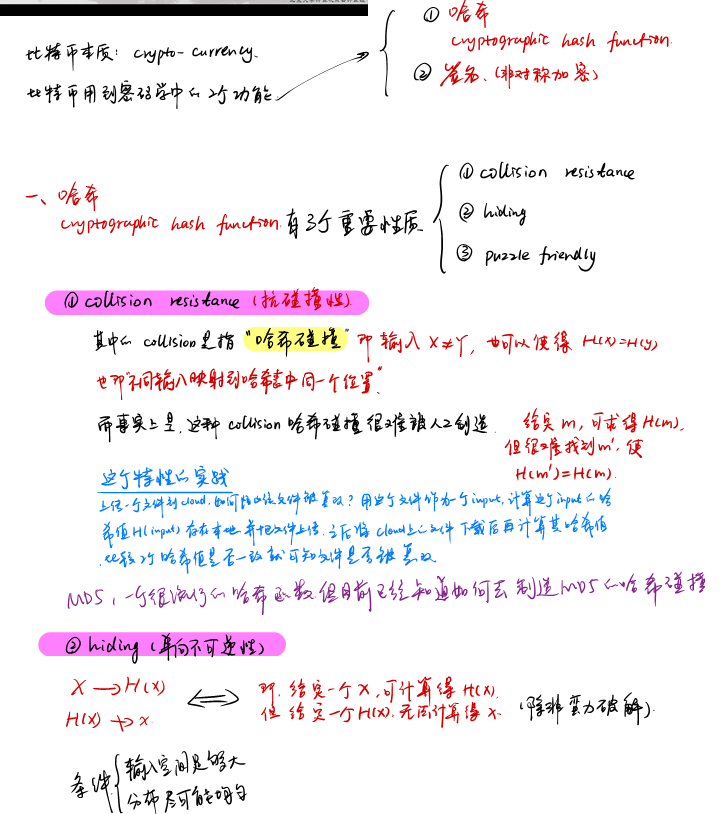 比特币本质: crypto-currency.
比特币用到密码学中的2个功能
① 哈希
cryptographic hash function.
② 签名、(非对称加密)
一、哈希
cryptographic hash function. 有3个重要性质
① collision resistance
② hiding
③ puzzle friendly
① collision resistance (抗碰撞性)
其中的 collision是指 "哈希碰撞" 即 输入 X≠Y, 也可以使得 H(x)=H(y)
也即"不同输入映射到哈希表中同一个位置".
而事实上是,这种 collision 哈希碰撞很难被人工制造.
给定 m, 可求得H(m),
但很难找到m', 使
H(m')=H(m).
这个特性的实践
上传一个文件到cloud, 如何防止该文件被篡改? 用这个文件作为一个input, 计算这个input的哈
希值H(input) 存在本地 并把文件上传. 之后将 cloud上的文件 下载后再计算其哈希值
比较2个哈希值是否一致就可知文件是否被篡改
MD5, 一个很流行的哈希函数但目前已经知道如何去制造MD5的哈希碰撞
② hiding (单向不可逆性)
X → H(X)
H(X) ↛ x
⟺
即, 给定一个 X, 可计算得 H(X).
但 给定一个H(X). 无法计算得 x. (除非 蛮力破解).
条件
输入空间足够大
分布尽可能均匀